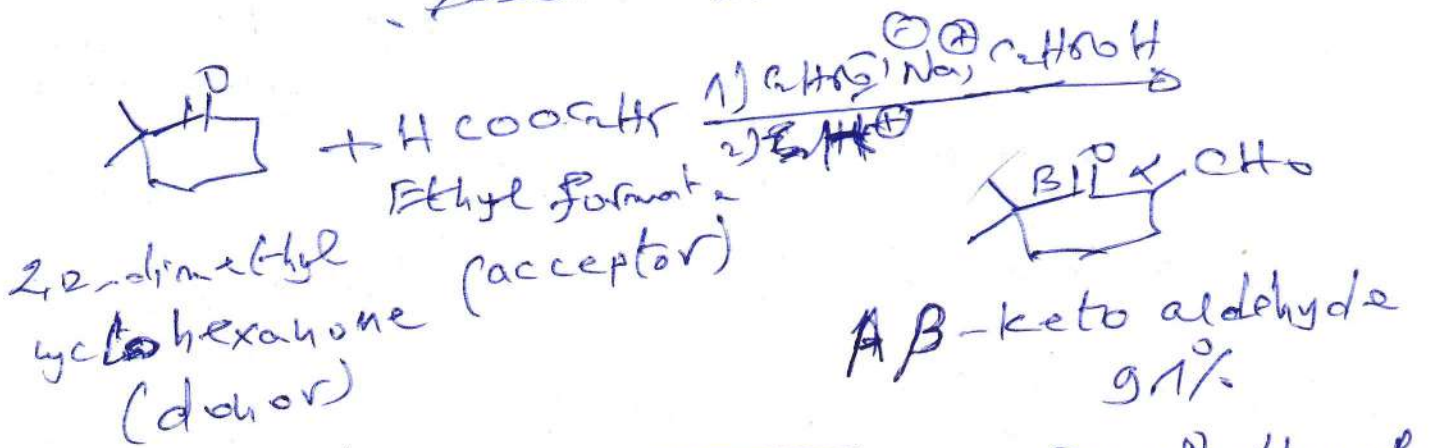 O
+ H COOC2H5
1) C2H5O⊖, Na⊕, C2H5OH
2) H⊕
Ethyl formate
(acceptor)
2,2-dimethyl
cyclohexanone
(donor)
O
β α CHO
A β-keto aldehyde
91%